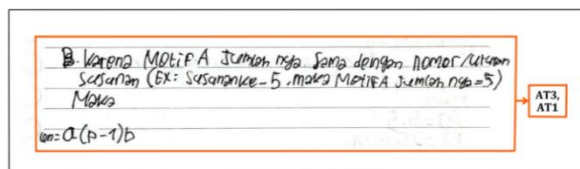 B. Karena MOtiF A Jumlah nya Sama dengan nomor/urutan
Susunan (Ex: Susunanke-5, maka MOtiFA Jumlah nya=5)
Maka
un=a(p-1)b
AT3,
AT1